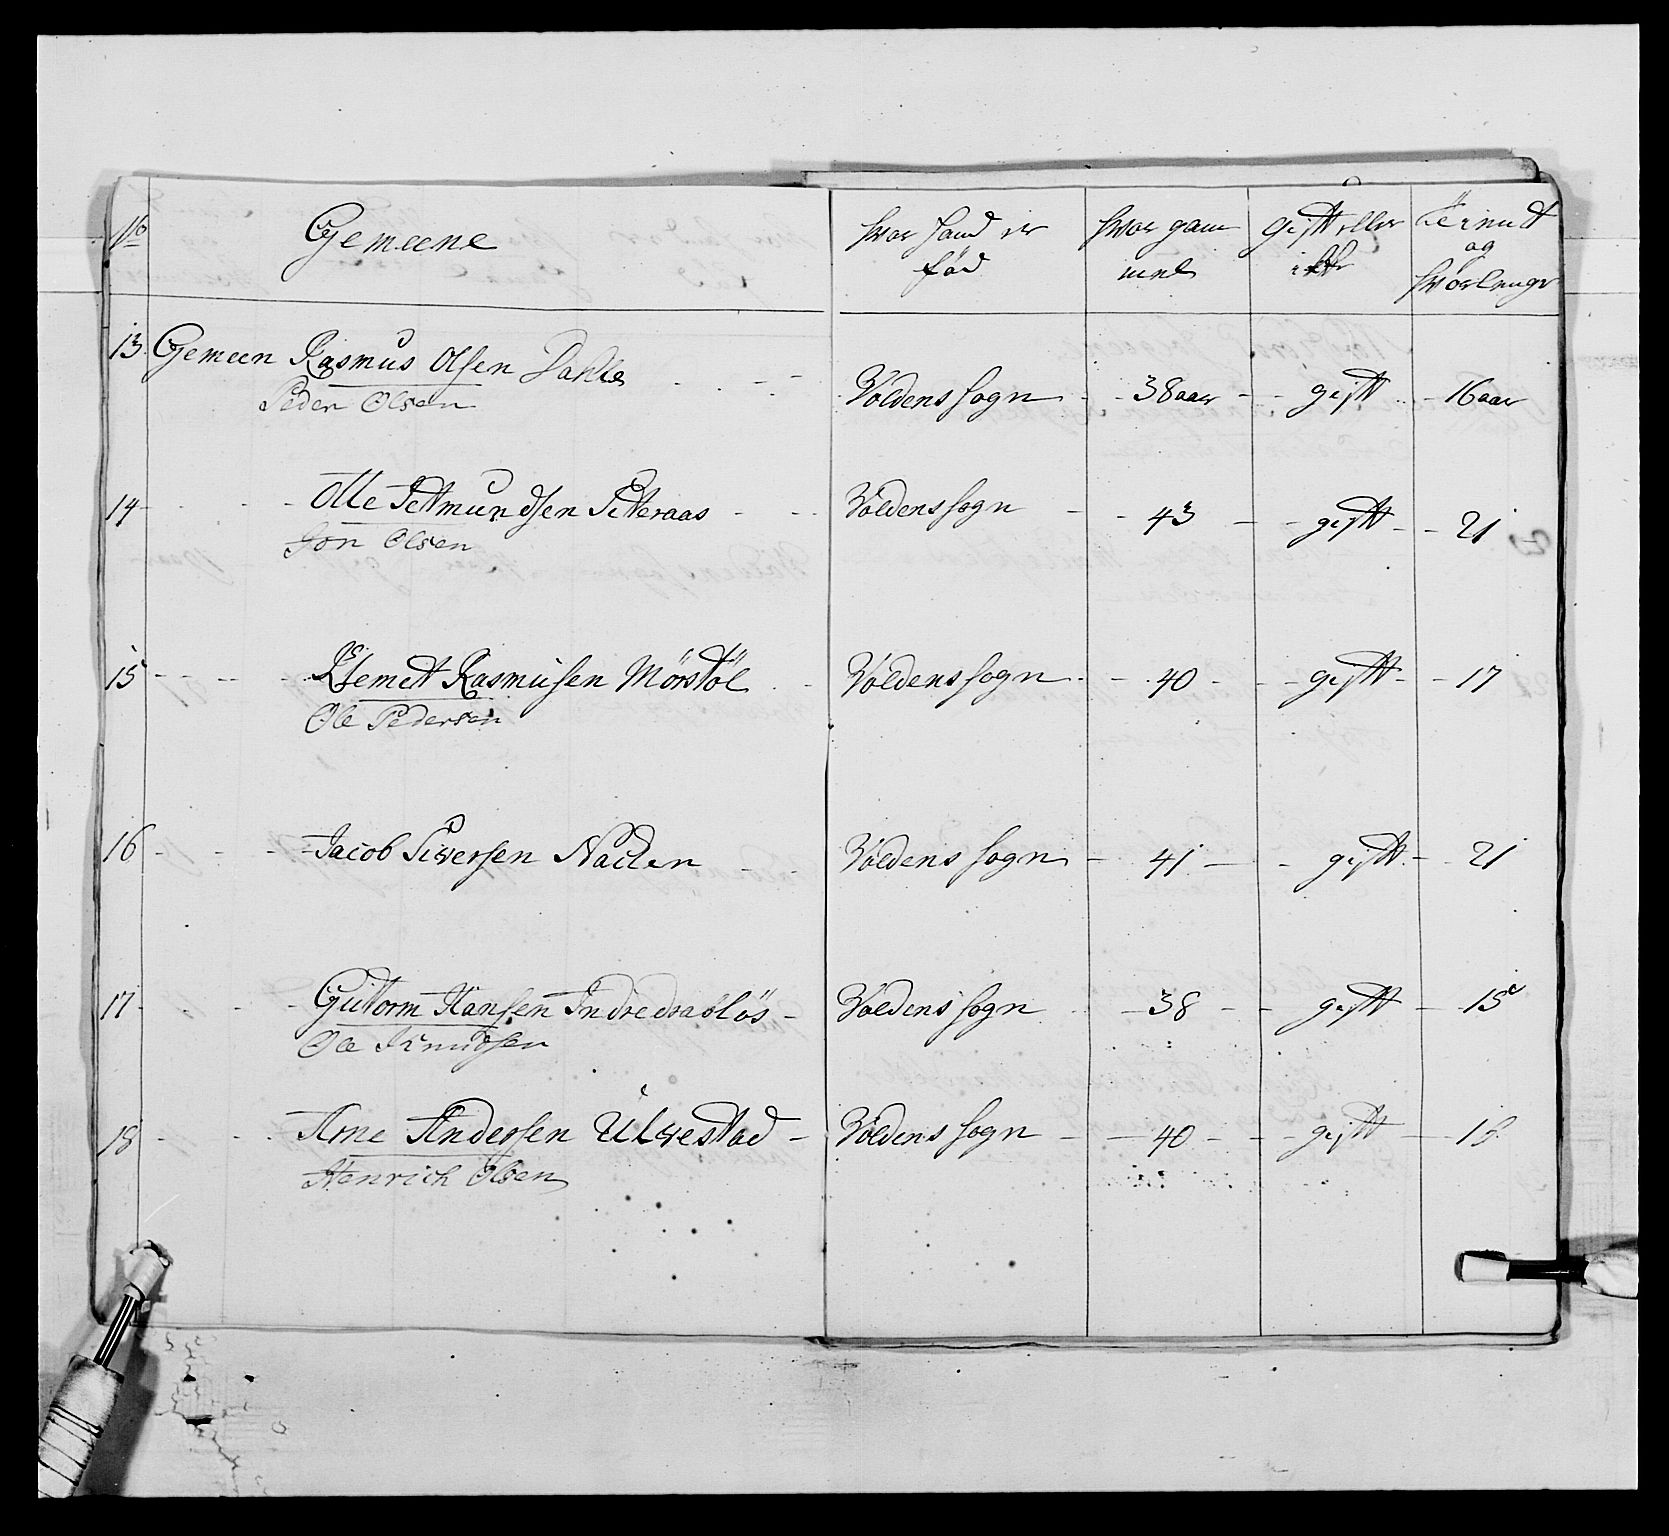 No Gemeene hvor hand er fød hvor gammel gift eller ikke tiendt og hvor lenge
13. Gemeen Rasmus Olsen Dahle - - - Voldens sogn - 38 aar - gift - 16 aar
Peder Olsen
14 - - - Olle Pettmundsen Peteraas - - Voldens sogn - 43 - gift - 21
Jon Olsen
15 - - - Rasmusen Mörstöl - Voldens sogn - 40 - gift - 17
Ole Pedersen
16 - - - Jacob Siversen - - Voldens sogn - 41 - gift - 21
17 - - - Guttorm Hansen - Voldens sogn - 38 - gift - 15
Ole Knudsen
18 - - - Arne Andersen Ulvestad - Voldens sogn - 40 - gift - 18
Henrich Olsen